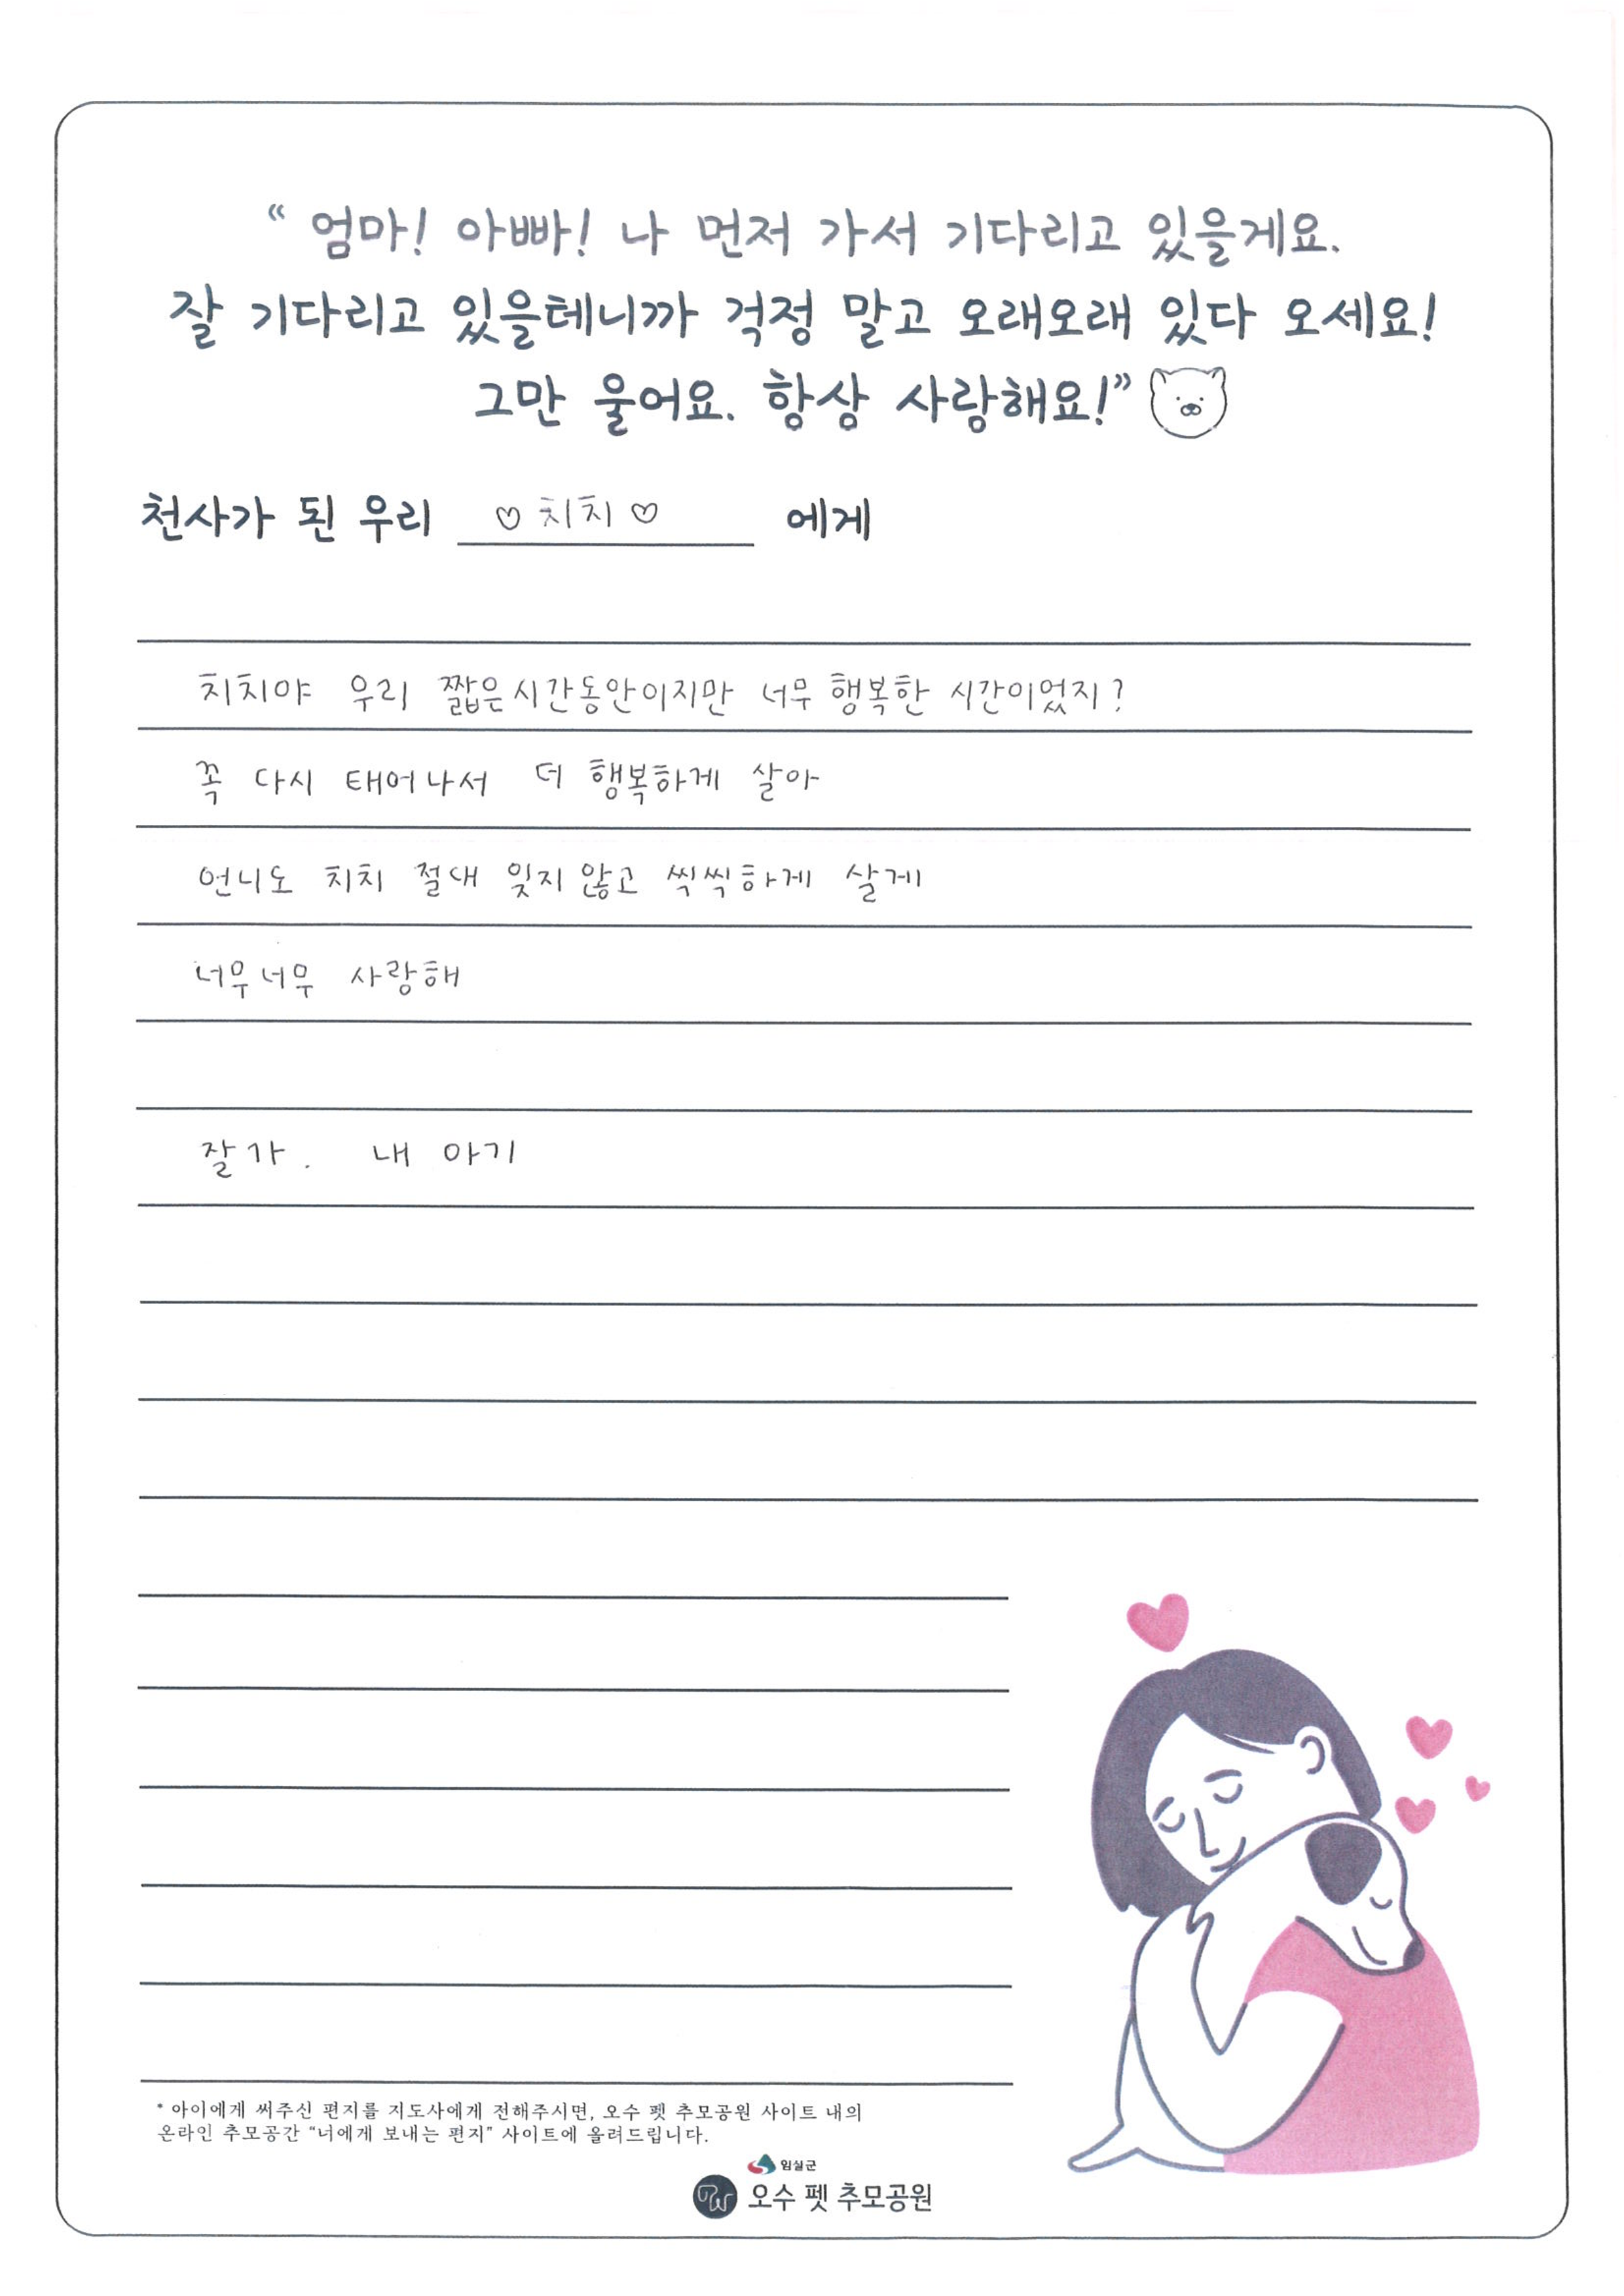 “ 엄마! 아빠! 나 먼저 가서 기다리고 있을게요.
잘 기다리고 있을테니까 걱정 말고 오래오래 있다 오세요!
그만 울어요. 항상 사랑해요!”
천사가 된 우리 ♡치치♡ 에게
치치야 우리 짧은시간동안이지만 너무 행복한 시간이었지?
꼭 다시 태어나서 더 행복하게 살아
언니도 치치 절대 잊지않고 씩씩하게 살게
너무너무 사랑해
잘가. 내 아기
* 아이에게 써주신 편지를 지도사에게 전해주시면, 오수 펫 추모공원 사이트 내의
온라인 추모공간 "너에게 보내는 편지" 사이트에 올려드립니다.
임실군
오수 펫 추모공원